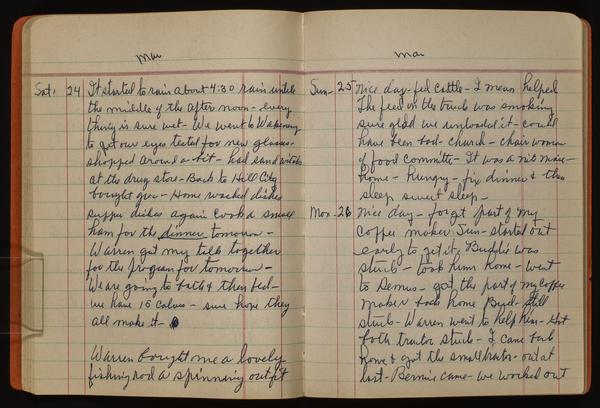 Mar
Sat. 24 It started to rain about 4:30 rain until
the middle of the afternoon - every
thing is sure wet - We went to Wakeeney
to get our eyes tested for new glasses -
shopped around a bit - had sandwiches
at the drug store - Back to Hill City
bought gro - Home washed dishes
supper dishes again Cook a small
ham for the dinner tomorrow -
Warren got my talk together
for the program for tomorrow -
We are going to bathe then bed -
we have 15 calves - sure hope they
all make it -
Warren bought me a lovely
fishing rod a spinning outfit
Mar
Sun - 25 Nice day - fed cattle - I mean helped
The feed on the truck was smoking
sure glad we unloaded it - could
have been bad - church - chair woman
of food committe - It was a
Home - hungry - fix dinner & then
sleep sweet sleep -
Mon - 26 Nice day - forgot part of my
coffee maker Sun - started out
early to get it, Budd's was
stuck - took him home - went
to Bemus - got the part of my coffee
maker back home Bud - still
stuck - Warren went to help him - Got
both tractor stuck - I came back
home & got the small tractor - out at
last - Bernie came - we worked out